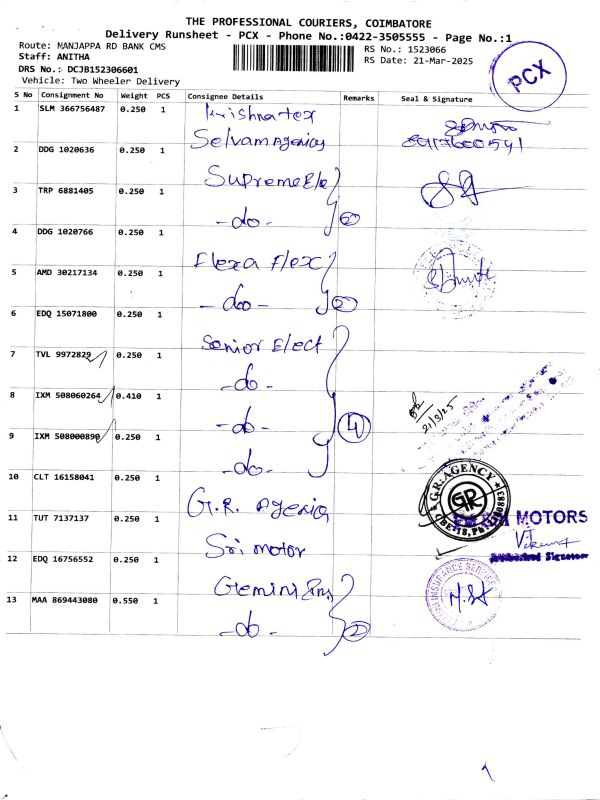 THE PROFESSIONAL COURIERS, COIMBATORE
Delivery Runsheet - PCX - Phone No.:0422-3505555 - Page No.:1
Route: MANJAPPA RD BANK CMS
RS No.: 1523066
Staff: ANITHA
RS Date: 21-Mar-2025
DRS No.: DCJB152306601
Vehicle: Two Wheeler Delivery
PCX
S No Consignment No Weight PCS Consignee Details Remarks Seal & Signature
1 SLM 366756487 0.250 1 Krishna tex
Selvam Agencies
2 DDG 1020636 0.250 1
Supreme Ele
3 TRP 6881405 0.250 1
-do- 2
4 DDG 1020766 0.250 1
Flexa Flex
5 AMD 30217134 0.250 1
-do- 2
6 EDQ 15071800 0.250 1
Senior Elect
7 TVL 9972829 0.250 1
-do-
8 IXM 508060264 0.410 1
21/3/25
-do- 4
9 IXM 508000890 0.250 1
-do-
10 CLT 16158041 0.250 1
G.R. Agencies
G.R. AGENCY
GR
11 TUT 7137137 0.250 1
MOTORS
Sri motor
Authorised Signatory
12 EDQ 16756552 0.250 1
Gemini Ins
INSURANCE SERVICE
13 MAA 869443080 0.550 1
-do- 2